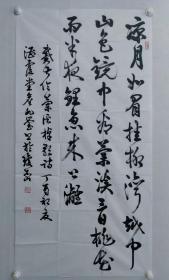 凉月如眉挂柳湾越中
山色镜中看兰溪三日桃花
雨半夜鲤鱼来上滩
戴叔伦兰溪棹歌诗 丁酉初夏
堂